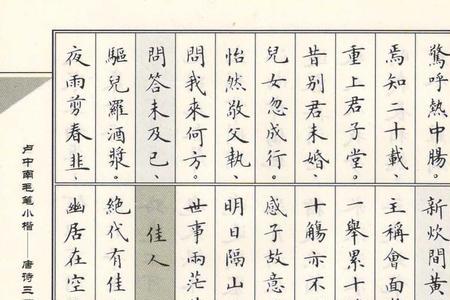 驚呼熱中腸。
焉知二十載、
重上君子堂。
昔别君未婚、
兒女忽成行。
怡然敬父執、
問我來何方。
問答未及已、
驅兒羅酒漿。
夜雨剪春韭、
新炊間黃
主稱會面
一舉累十
十觴亦不
感子故意
明日隔山
世事兩茫
佳人
絕代有佳
幽居在空
卢中南毛笔小楷——唐诗三